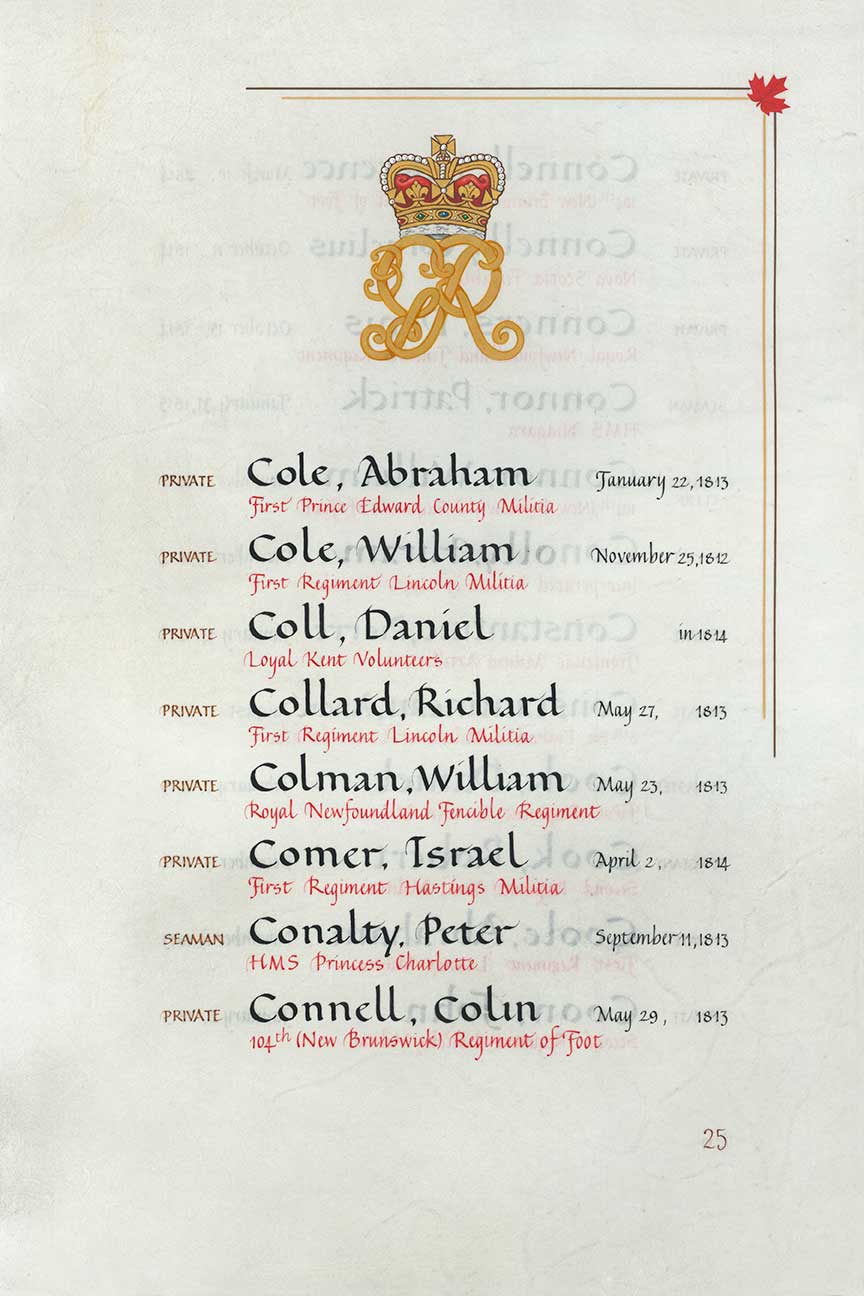 PRIVATE Cole, Abraham January 22, 1813
First Prince Edward County Militia
PRIVATE Cole, William November 25, 1812
First Regiment Lincoln Militia
PRIVATE Coll, Daniel in 1814
Loyal Kent Volunteers
PRIVATE Collard, Richard May 27, 1813
First Regiment Lincoln Militia
PRIVATE Colman, William May 23, 1813
Royal Newfoundland Fencible Regiment
PRIVATE Comer, Israel April 2, 1814
First Regiment Hastings Militia
SEAMAN Conalty, Peter September 11, 1813
HMS Princess Charlotte
PRIVATE Connell, Colin May 29, 1813
104th (New Brunswick) Regiment of Foot
25